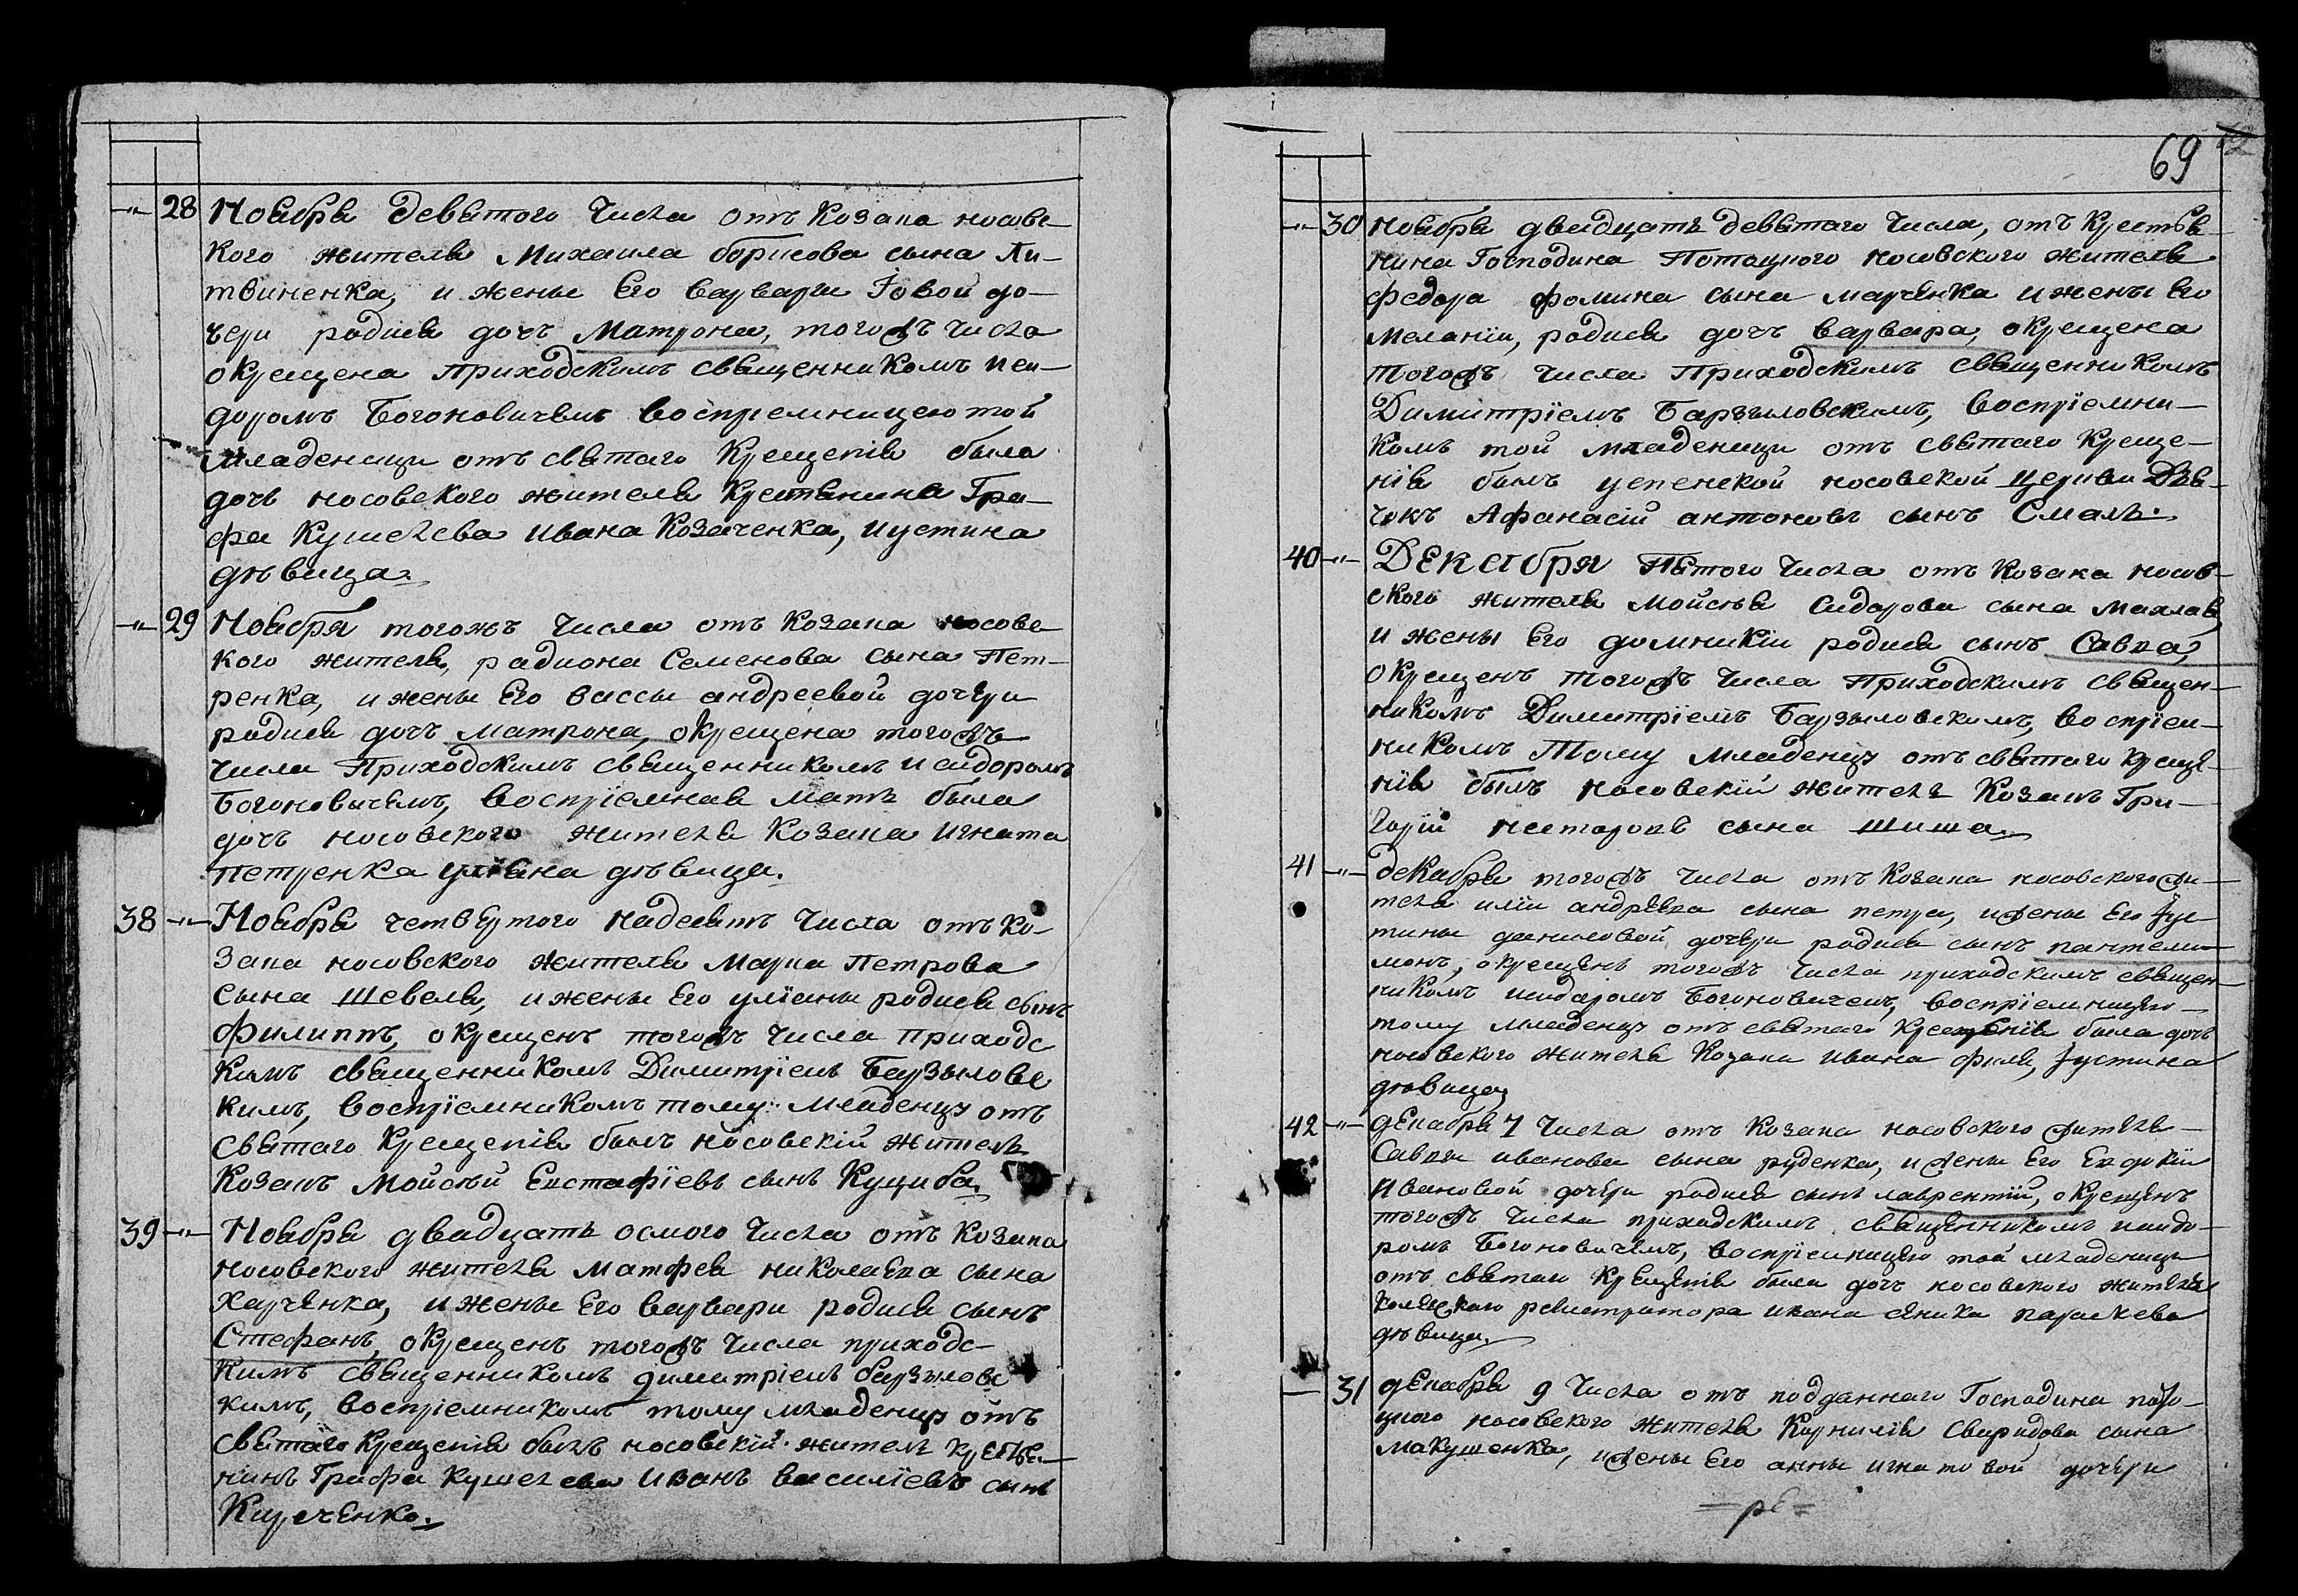 -"- 28 Ноября девятого числа отъ Козака носовс-
кого жителя Михаила борисова сына Ли-
твиненка, и жены Его варвари Іовой до-
чери родися дочь Матрона, тогожъ числа
окрещена Приходскимъ священникомъ иси-
доромъ Богоновичемъ воспріемницею той
младеници отъ святаго Крещенія была
дочь носовского жителя Крестянина Гра-
фа Кушелева Ивана Козаченка, иустина
дѣвица.
-"- 29 Ноября тогожъ числа отъ Козака носовс
кого жителя, радиона Семенова сына Пет-
ренка, и жены Его вассы андреевой дочери
родися дочь матрона, окрещена тогожъ
числа Приходскимъ священникомъ исидоромъ
Богоновичемъ, воспріемная мать была
дочь носовского жителя Козака игната
петренка уліяна дѣвица.
38 -"- Ноября четвертого надесять числа отъ Ко-
зака носовского жителя Марка Петрова
сына Шевеля, и жены Его уліяны родися сынъ
Филиппъ, окрещенъ тогожъ числа приходс
кимъ священникомъ Димитріемъ Барзыловс
кимъ, воспріемникомъ тому младенцу отъ
святаго Крещенія былъ носовскій житель
Козакъ Мойсѣй Евстафіевъ сынъ Куциба.
39 -"- Ноября двадцать осмого числа отъ Козака
носовского жителя матфея николаева сына
харченка, и жены Его варвари родися сынъ
Стефанъ, окрещенъ тогожъ числа приходс-
кимъ священникомъ димитріемъ барзиловс
кимъ, воспріемникомъ тому младенцу отъ
святаго Крещенія былъ носовскій житель крестя-
нинъ Графа Кушелева Иванъ василіевъ сынъ
Кирченко.
69
-"- 30 ноября двадцать девятаго числа, отъ Крестья
нина Господина Потоцкого носовского жителя
федора фомина сына марченка и жены его
меланіи, родися дочь варвара, окрещена
тогожъ числа Приходскимъ священникомъ
Димитріемъ Барзиловскимъ, воспріемни-
комъ той младеници отъ святаго Креще-
нія былъ успенской носовской церкви Дья-
чокъ Афанасій антоновъ сынъ Смаль.
40 -"- Декабря Пятого числа отъ Козака носов-
ского жителя мойсѣя сидорова сына махлая
и жены Его домникіи родися сынъ Савва,
окрещенъ тогожъ числа Приходскимъ священ-
никомъ Димитріемъ Барзыловскимъ, воспріем-
никомъ тому младенцу отъ святаго Креще-
нія былъ носовскій житель Козакъ Гри-
горій несторовъ сына Шиша.
41 -"- декабря тогожъ числа отъ Козака носовского жи-
теля иліи андреева сына петра, и жены Его Іус-
тины даниловой дочери родися сынъ пантели-
монъ, окрещенъ тогожъ числа приходскимъ священ-
никомъ исидоромъ Богоновичемъ, воспріемницею
тому младенцу отъ святаго Крещенія была дочь
носовского жителя Козака ивана филя, Іустина
дѣвица,
42 -"- декабря 7 числа отъ Козака носовского жителя
Саввы иванова сына руденка, и жены Его Евдокіи
ивановой дочери родися сынъ лаврентій, окрещенъ
тогожъ числа приходскимъ священникомъ исидо-
ромъ Богоновичемъ, воспріемницею той младеници
отъ святаго Крещенія была дочь носовского жителя
колежского регистратора ивана яника параскева
дѣвица.
- 31 декабря 9 числа отъ подданнаго Господина пото-
цкого носовского жителя Корнилія Свиридова сына
макушенка, и жены Его анны игнатовой дочери
=рЕ=